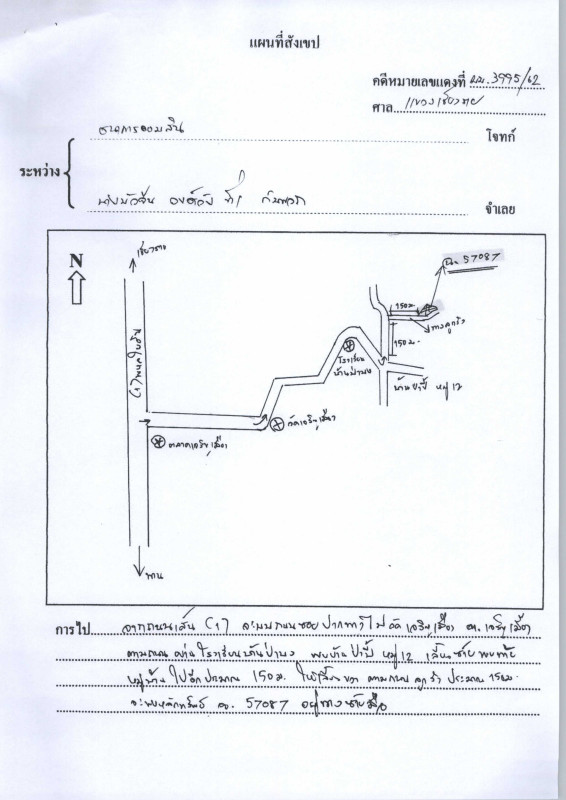 แผนที่สังเขป
คดีหมายเลขแดงที่ ผบ. 3995/62
ศาล แขวงเชียงราย
ธนาคารออมสิน
โจทก์
ระหว่าง
นางบัวจีน
ที่ 1
จำเลย
N
เชียงราย
ฉ. 57087
150 ม.
ทางลูกรัง
150 ม.
(1) พหลโยธิน
โรงเรียน
บ้านป่าบง
บ้านปายี้ หมู่ 12
วัดเจริญเมือง
ตลาดเจริญเมือง
พาน
การไป จากถนนเส้น (1) จะพบถนนซอย ปากทางไปวัดเจริญเมือง ต. เจริญเมือง
ตามถนน ผ่านโรงเรียนบ้านป่าบง พบบ้านปายี้ หมู่ 12 เลี้ยวซ้าย พบท้าย
หมู่บ้าน ไปอีกประมาณ 150 ม. ให้เลี้ยวขวา ตามถนนลูกรัง ประมาณ 150 ม.
จะพบหลักทรัพย์ ฉ. 57087 อยู่ทางซ้ายมือ